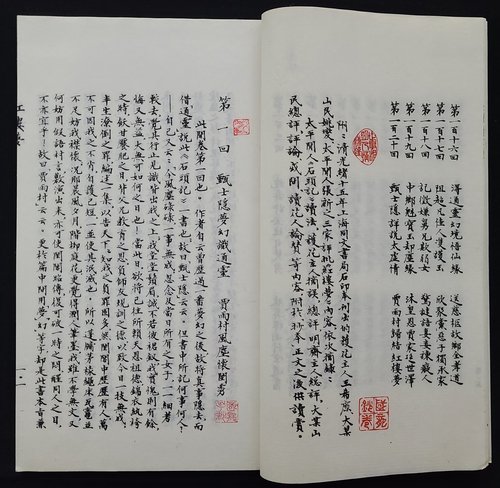 第一百十六回　得通靈幻境悟仙緣　送慈柩故鄉全孝道
第一百十七回　阻超凡佳人雙護玉　欣聚黨惡子獨承家
第一百十八回　記微嫌舅兄欺弱女　驚謎語妻妾諫癡人
第一百十九回　中鄉魁寶玉卻塵緣　沐皇恩賈家延世澤
第一百二十回　甄士隱詳說太虛情　賈雨村歸結紅樓夢
附：清光緒十五年上海同文書局石印本刊出的護花主人王希廉大某
山民姚燮太平閒人張新之三家評批
太平閒人《石頭記》讀法護花主人摘誤總評明齋主人總評大某山
民總評評論或問讀花人論贊等內容附於
第一回　甄士隱夢幻識通靈　賈雨村風塵懷閨秀
此開卷第一回也作者自云曾歷過一番夢幻之後故將真事隱去而
借通靈說此《石頭記》一書也故曰甄士隱云云但書中所記何事何人
自己又云今風塵碌碌一事無成忽念及當日所有之女子一一細考
較去覺其行止見識皆出我之上我堂堂鬚眉誠不若彼裙釵我實愧則有餘
悔又無益大無可如何之日也當此日欲將已往所賴天恩祖德錦衣紈袴
之時飫甘饜肥之日背父兄教育之恩負師友規訓之德以致今日一技無成
半生潦倒之罪編述一集以告天下知我之負罪固多然閨閣中歷歷有人萬
不可因我之不肖自護己短一並使其泯滅也所以蓬牖茅椽繩床瓦竈並
不足妨我襟懷況那晨風夕月階柳庭花更覺得潤人筆墨我雖不學無文又
何妨用假語村言敷演出來亦可使閨閣昭傳復可破一時之悶醒同人之目
不亦宜乎故曰賈雨村云云更於篇中間用夢幻等字卻是此書本旨兼
紅樓夢